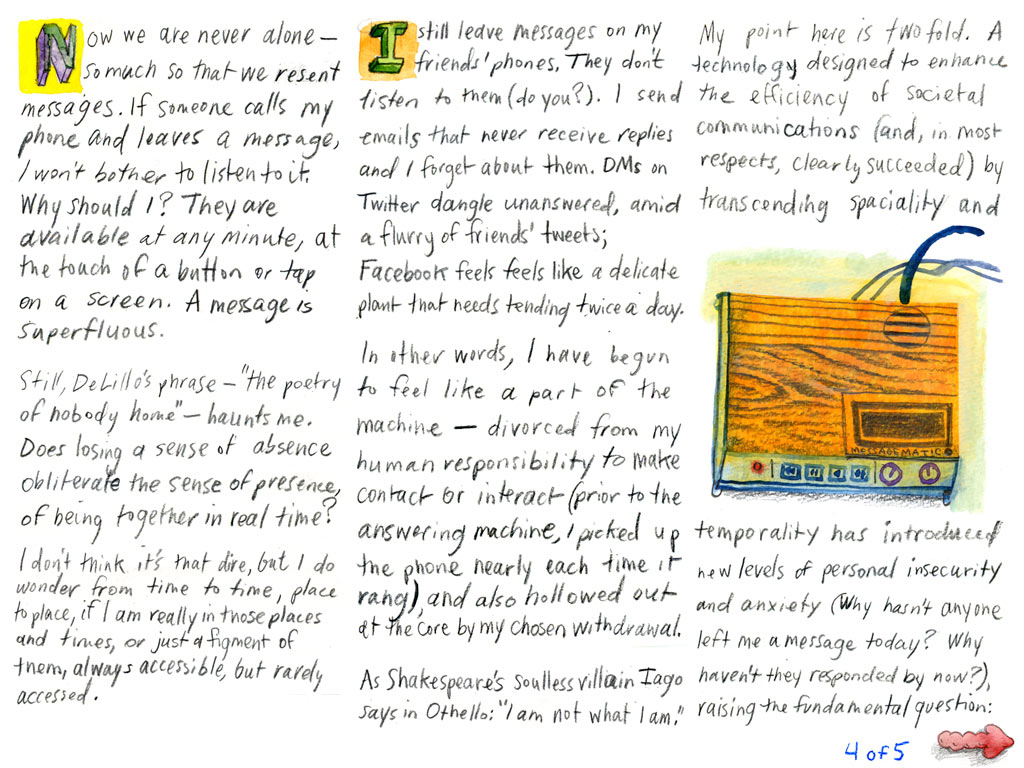 Now we are never alone—
so much so that we resent
messages. If someone calls my
phone and leaves a message,
I won't bother to listen to it.
Why should I? They are
available at any minute, at
the touch of a button or tap
on a screen. A message is
superfluous.
Still, DeLillo's phrase—"the poetry
of nobody home"—haunts me.
Does losing a sense of absence
obliterate the sense of presence,
of being together in real time?
I don't think it's that dire, but I do
wonder from time to time, place
to place, if I am really in those places
and times, or just a figment of
them, always accessible, but rarely
accessed.
I still leave messages on my
friends' phones. They don't
listen to them (do you?). I send
emails that never receive replies
and I forget about them. DMs on
Twitter dangle unanswered, amid
a flurry of friends' tweets;
Facebook feels feels like a delicate
plant that needs tending twice a day.
In other words, I have begun
to feel like a part of the
machine — divorced from my
human responsibility to make
contact or interact (prior to the
answering machine, I picked up
the phone nearly each time it
rang), and also hollowed out
at the core by my chosen withdrawal.
As Shakespeare's soulless villain Iago
says in Othello: "I am not what I am."
My point here is twofold. A
technology designed to enhance
the efficiency of societal
communications (and, in most
respects, clearly succeeded) by
transcending spaciality and
MESSAGEMATIC
temporality has introduced
new levels of personal insecurity
and anxiety (Why hasn't anyone
left me a message today? Why
haven't they responded by now?),
raising the fundamental question:
4 of 5